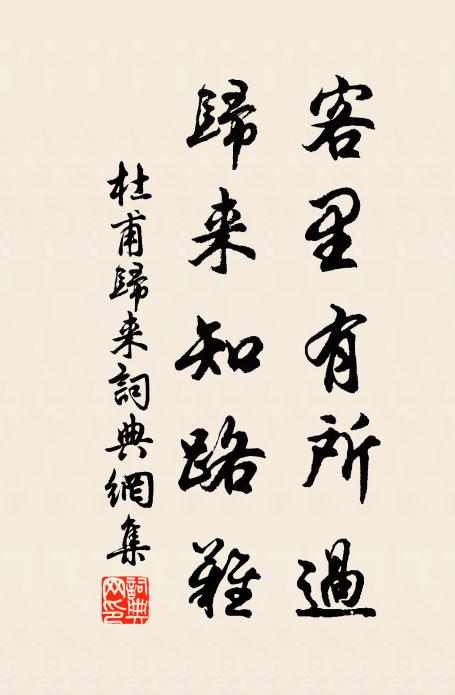 客里有所過
歸来知路難
杜甫歸来詞典網集
詞典網印